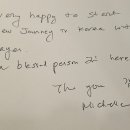 very happy to start
new Journey to Korea with
ayer.
a blessed person It here
The you
Michelle